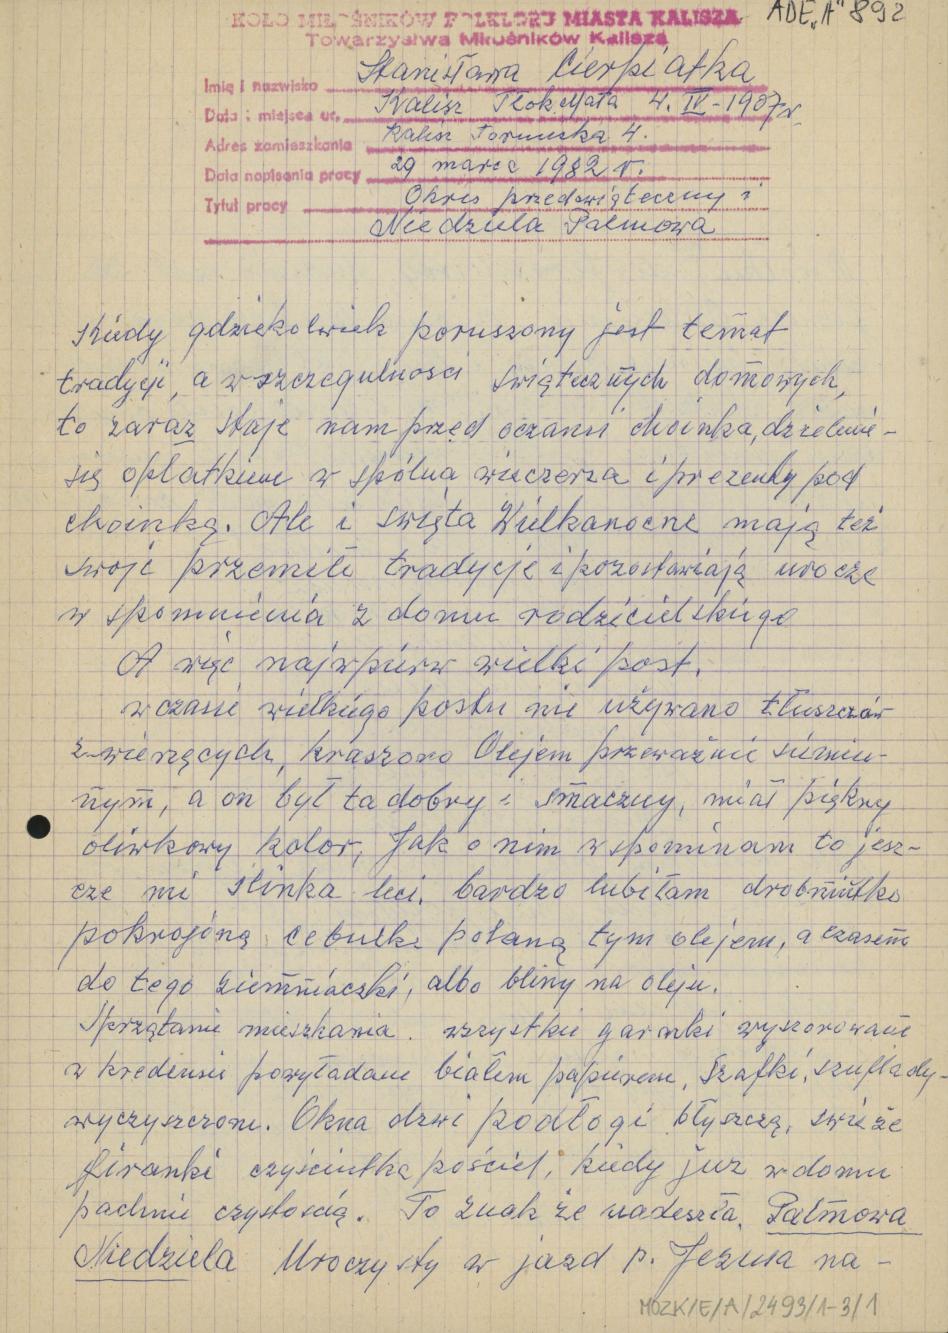 ADE„A" 892
KOŁO MIŁOŚNIKÓW FOLKLORU MIASTA KALISZA
Towarzystwa Miłośników Kalisza
Imię i nazwisko Stanisława Cierpiatka
Data i miejsce ur. Kalisz 4. IV - 1907 r.
Adres zamieszkania Kalisz 4.
Data napisania pracy 29 marca 1982 r.
Tytuł pracy Okres przedświąteczny i
Niedziela Palmowa
Kiedy gdziekolwiek poruszony jest temat
tradycji, a w szczegulnosci swiątecznych domowych,
to zaraz staje nam przed oczami choinka, dzielenie-
się opłatkiem w spólna wieczerza i prezenty pod
choinką. Ale i swięta Wielkanocne mają też
swoje przemiłe tradycje i pozostawiają urocze
w spomnienia z domu rodzicielskiego
A więc najwpierw wielki post.
w czasie wielkiego postu nie używano tłuszczów
zwierzęcych, kraszono Olejem przeważnie siemien-
nym, a on był ta dobry i smaczny, miał piękny
oliwkowy kolor, Jak o nim wspominam to jesz-
cze mi slinka leci. bardzo lubiłam drobniutko
pokrojóną cebulkę polaną tym olejem, a czasem
do tego ziemniaczki, albo bliny na oleju.
Sprzątanie mieszkania. wszystkie garnki wyszorowane
w kredensie powyładane białem papierem, szafki, szuflady-
wyczyszczone. Okna dzwi podłogi błyszczą, swieże
firanki czyściutka pościel, kiedy juz w domu
pachnie czystością. To znak że nadeszła, Palmowa
Niedziela Uroczysty w jazd p. Jezusa na -
MOZK/E/A/2493/1-3/1